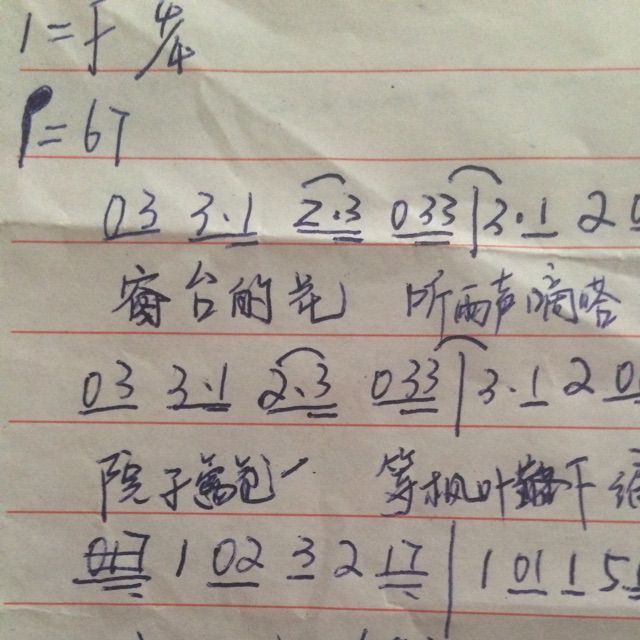 1=F
♩=67
03 3·1 2·3 033|3·1 20
窗台的花 听雨声滴嗒
03 3·1 2·3 033|3·1 20
院子 等枫叶
1 02 3 2 17|1 01 1 5